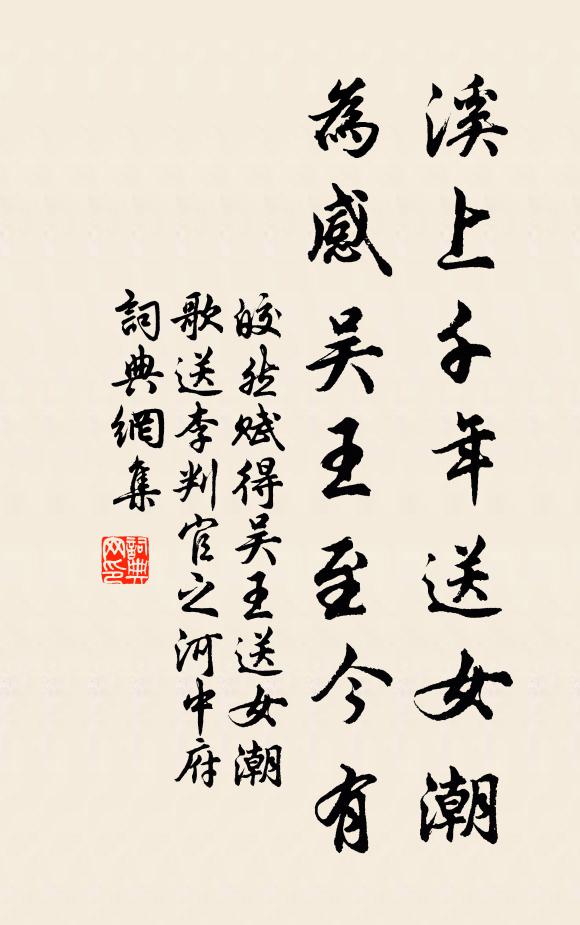 溪上千年送女潮
為感吳王至今有
皎然賦得吳王送女潮
歌送李判官之河中府
詞典網集
詞典网印